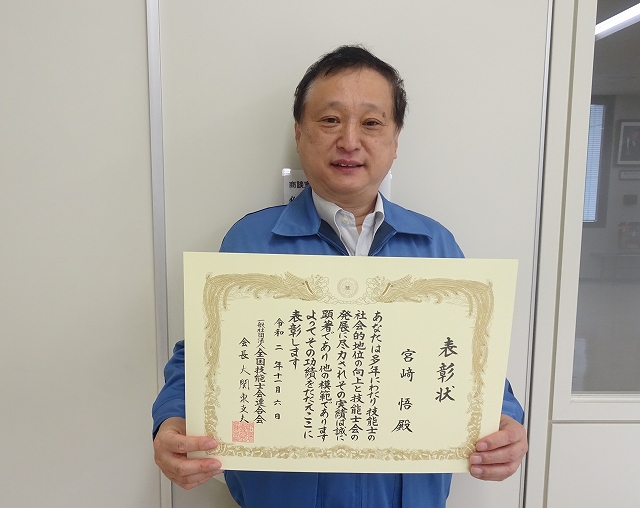 表彰状
宮崎 悟 殿
あなたは多年にわたり技能士の
社会的地位の向上と技能士会の
発展に尽力されその実績は誠に
顕著であり他の模範であります
よってその功績をたたえここに
表彰します
令和二年十一月六日
一般社団法人全国技能士会連合会
会長 大関東支夫
商談室